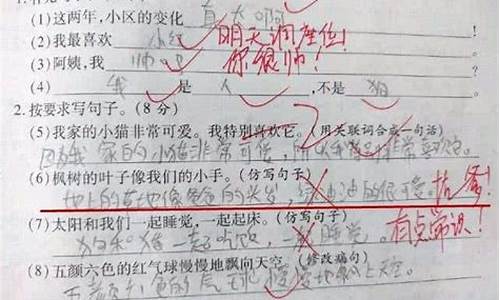 (1)这两年,小区的变化 真大啊
(2)我最喜欢 小红 明天调座位!
(3)阿姨,我 帅吧 你很帅!
(4) 我 是 人 ,不是 狗
2.按要求写句子。(8分)
(5)我家的小猫非常可爱。我特别喜欢它。(用关联词合成一句话)
因为我家的小猫非常可爱,所以我特别非常喜欢它。
(6)枫树的叶子像我们的小手。(仿写句子)
地上的草地像爸爸的头发,绿油油的很可爱。
(7)太阳和我们一起睡觉,一起起床。(仿写句子)
一起吃饭,一起睡觉。 有点常识!
(8)五颜六色的红气球慢慢地飘向天空。(修改病句)
五颜六色的气球慢慢地飘上天空。